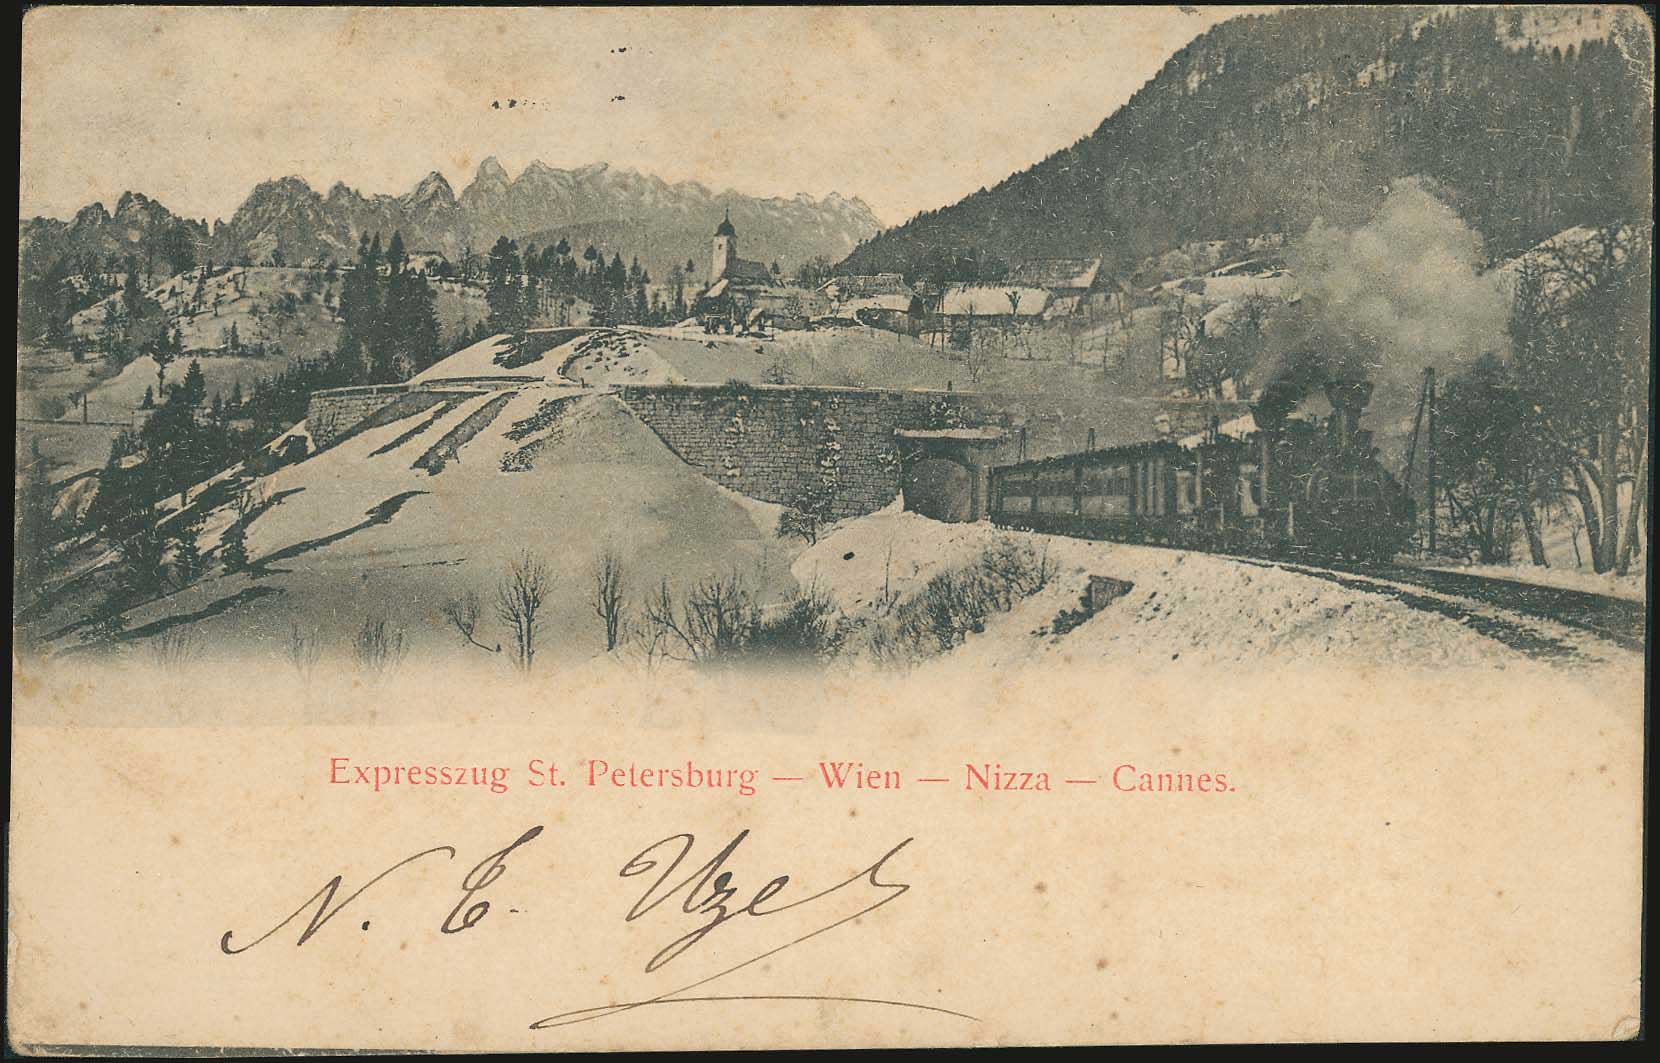 Expresszug St. Petersburg — Wien — Nizza — Cannes.
N. E. Uzel